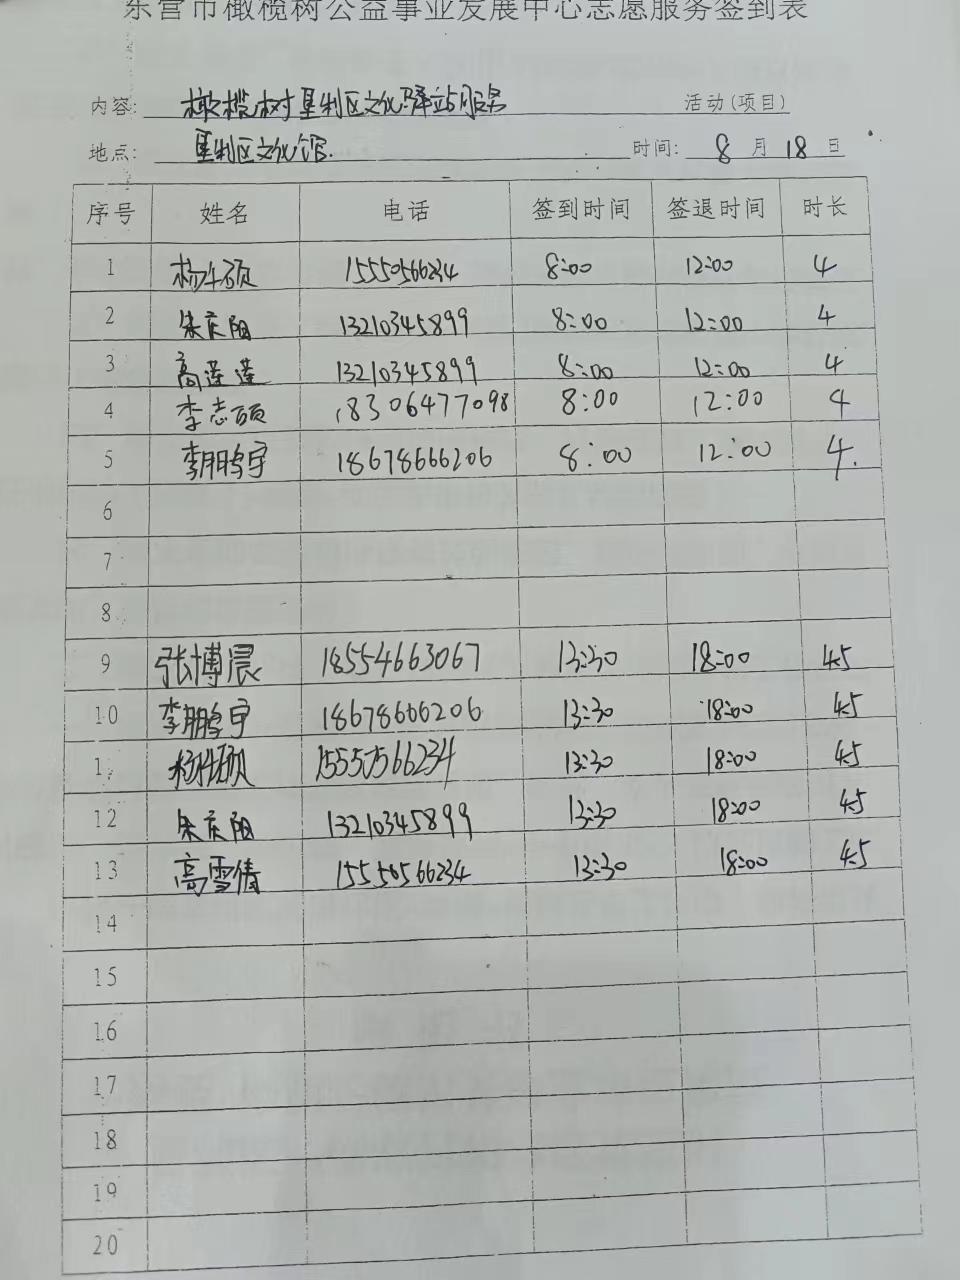 东营市橄榄树公益事业发展中心志愿服务签到表
内容: 橄榄树垦利区文化驿站服务 活动(项目)
地点: 垦利区文化馆. 时间: 8 月 18 日
序号 姓名 电话 签到时间 签退时间 时长
1 15550566234 8:00 12:00 4
2 朱庆阳 13210345899 8:00 12:00 4
3 高莲莲 13210345899 8:00 12:00 4
4 李志硕 18306477098 8:00 12:00 4
5 李鹏宇 18678666206 8:00 12:00 4.
6
7
8
9 张博晨 18554663067 13:30 18:00 4.5
10 李鹏宇 18678606206 13:30 18:00 4.5
1 15550566234 13:30 18:00 4.5
12 朱庆阳 13210345899 13:30 18:00 4.5
13 高雪倩 15550566234 13:30 18:00 4.5
14
15
16
17
18
19
20